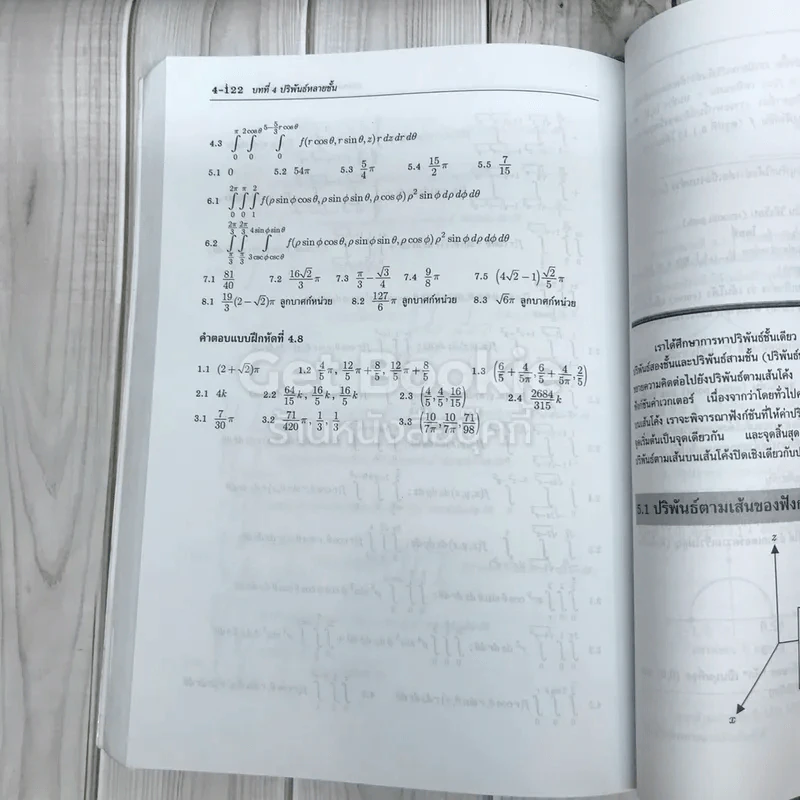 4-122 บทที่ 4 ปริพันธ์หลายชั้น
4.3 ∫₀^π ∫₀^(2cosθ) ∫₀^(5−(5/3)r cosθ) f(r cosθ, r sinθ, z) r dz dr dθ
5.1 0 5.2 54π 5.3 5/4 π 5.4 15/2 π 5.5 7/15
6.1 ∫₀^(2π) ∫₀^π ∫₁^2 f(ρ sinφ cosθ, ρ sinφ sinθ, ρ cosφ) ρ² sinφ dρ dφ dθ
6.2 ∫_(π/3)^(2π/3) ∫_(π/3)^(2π/3) ∫_(3 cscφ cscθ)^(4 sinφ sinθ) f(ρ sinφ cosθ, ρ sinφ sinθ, ρ cosφ) ρ² sinφ dρ dφ dθ
7.1 81/40 7.2 16√2/3 π 7.3 π/3 − √3/4 7.4 9/8 π 7.5 (4√2 − 1) √2/5 π
8.1 19/3 (2 − √2)π ลูกบาศก์หน่วย 8.2 127/6 π ลูกบาศก์หน่วย 8.3 √6π ลูกบาศก์หน่วย
คำตอบแบบฝึกหัดที่ 4.8
1.1 (2 + √2)π 1.2 4/5 π, 12/5 π + 8/5, 12/5 π + 8/5 1.3 (6/5 + 4/5π, 6/5 + 4/5π, 2/5)
2.1 4k 2.2 64/15 k, 16/5 k, 16/5 k 2.3 (4/5, 4/5, 16/15) 2.4 2684/315 k
3.1 7/30 π 3.2 71/420 π, 1/3, 1/3 3.3 (10/7π, 10/7π, 71/98)
GetBookie
ร้านหนังสือบุคกี้
เราได้ศึกษาการหาปริพันธ์ชั้นเดียว
ปริพันธ์สองชั้นและปริพันธ์สามชั้น (ปริพันธ์
ขยายความคิดต่อไปยังปริพันธ์ตามเส้นโค้ง
ฟังก์ชันค่าเวกเตอร์ เนื่องจากว่าโดยทั่วไป
ตามเส้นโค้ง เราจะพิจารณาฟังก์ชันที่ให้ค่า
จุดเริ่มต้นเป็นจุดเดียวกัน และจุดสิ้นสุด
ปริพันธ์ตามเส้นบนเส้นโค้งปิดเชิงเดียว
5.1 ปริพันธ์ตามเส้นของฟัง
z
x